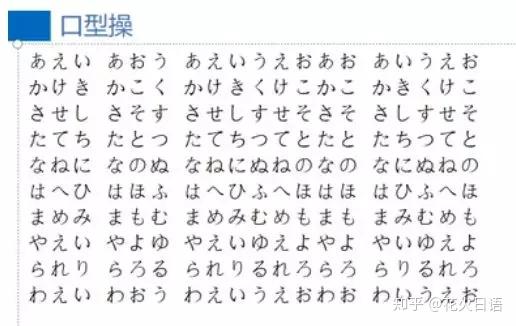 口型操
あえい あおう あえいうえおあお あいうえお
かけき かこく かけきくけこかこ かきくけこ
させし さそす させしすせそさそ さしすせそ
たてち たとつ たてちつてとたと たちつてと
なねに なのぬ なねにぬねのなの なにぬねの
はへひ はほふ はへひふへほはほ はひふへほ
まめみ まもむ まめみむめもまも まみむめも
やえい やよゆ やえいゆえよやよ やいゆえよ
られり らろる られりるれろらろ らりるれろ
わえい わおう わえいうえおわお わいうえお
知乎 @花火日语